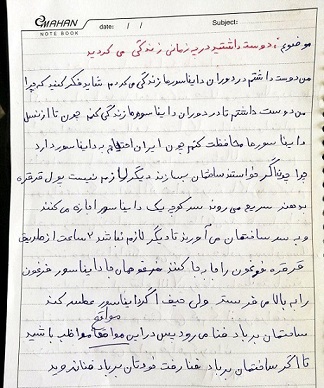 MAHAN
NOTE BOOK
date: / /
Subject:
موضوع: دوست داشتید در چه زمانی زندگی می کردید
من دوست داشتم در دوران دایناسورها زندگی می کردم شاید فکر کنید که چرا
من دوست داشتم تا در دوران دایناسورها زندگی کنم چون تا از نسل
دایناسورها محافظت کنم چون ایران احتیاج به دایناسور دارد
چرا چون اگر خواستند ساختمان بسازند دیگر لازم نیست پول قرقره
بدهند سریع می روند سر کوچه یک دایناسور اجاره می کنند
و به سر ساختمان می آورند تا دیگر لازم نباشد ۲ ساعت از طریق
قرقره فرغون را جا به جا کنند دایناسور فرغون
را به بالا می فرستد ولی حیف اگر دایناسور عطسه کند
مواقع
ساختمان بر باد فنا می رود پس در این مواظب باشید
تا اگر ساختمان بر باد فنا رفت خودتان بر باد فنا نروید